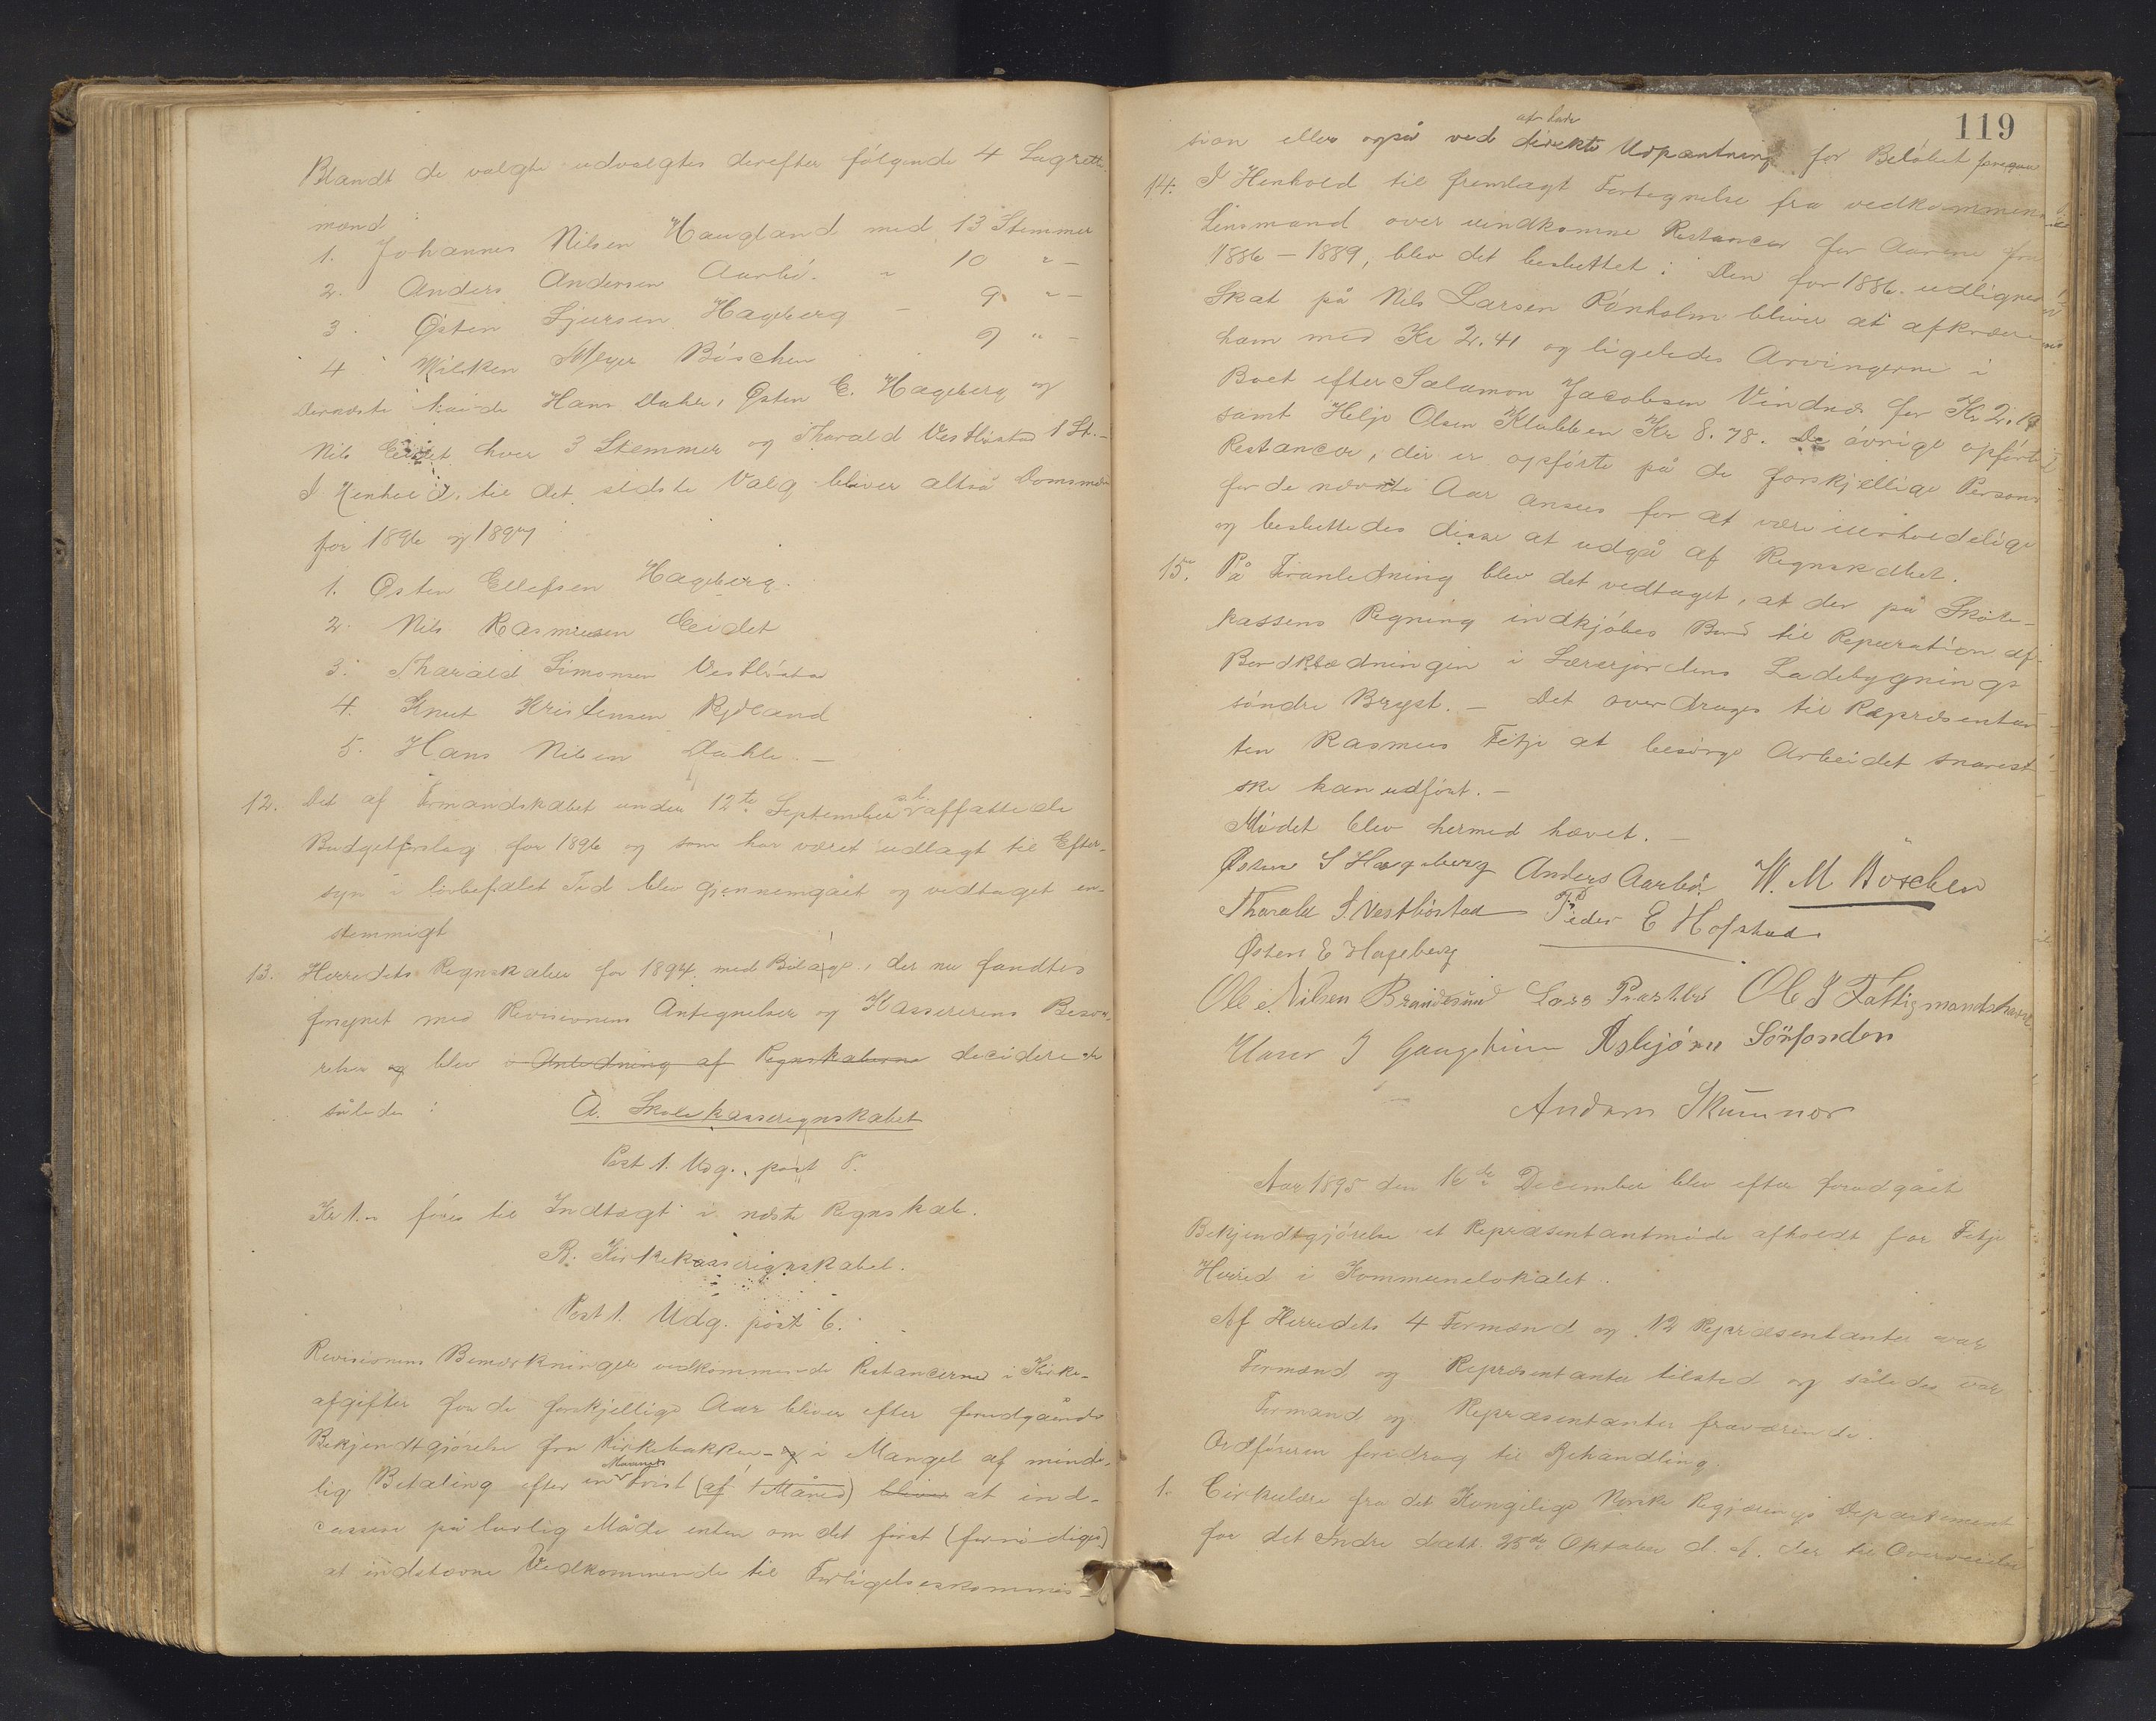 Blandt de valgte udvalgtes derefter følgende 4 Lagrette-
mænd:
1. Johannes Nilsen Haugland med 13 Stemmer
2. Anders Andersen Aarbø - 10 " -
3. Østen Sjursen Hageberg - 9 " -
4 Wilken Meyer Böschen 9 " -
Dernæste havde Hans Dahle, Østen E. Hageberg og
Nils Eidet hver 3 Stemmer og Tharald Vestbøstad 1 St. -
I Henhold til det sidste Valg bliver altså Domsmænd
for 1896 og 1897
1. Østen Ellefsen Hageberg.
2. Nils Rasmusen Eidet
3. Tharald Simonsen Vestbøstad
4. Knut Kristensen Rydland
5. Hans Nilsen Dahle. -
12. Det af Formandskabet under 12te September s.l. affattede
Budgetforslag for 1896 og som har været udlagt til Efter-
syn i lovbefalet Tid blev gjennemgået og vedtaget en-
stemmigt
13. Herredets Regnskaber for 1894 med Bilage, der nu fandtes
forsynet med Revisionens Antegnelser og Kassererens Besva-
relser og blev i Anledning af Regnskaberne deciderede
således:
A. Skolekasseregnskabet
Post 1. Udg. post 8.
Kr 1.- føres til Indtægt i næste Regnskab.
B. Kirkekasseregnskabet.
Post 1. Udg. post 6.
Revisionens Bemærkninger vedkommende Restancerne i Kirke-
afgifter for de forskjellige Aar bliver efter forudgående
Bekjendtgjørelse fra Kirkebakken - og i Mangel af mindе-
lig Betaling efter en Maaneds Frist (af 1 Måned) bliver at ind-
cassere på lovlig Måde enten om det først (fornødiges)
at indstævne Vedkommende til Forligelseskommis-
119
af hans
sion eller også ved direkte Udpantning for Beløbet foregaa
14. I Henhold til fremlagt Fortegnelse fra vedkommende
Lensmand over uindkomne Restancer for Aarene fra
1886 - 1889, blev det besluttet: Den for 1886 udlignede
Skat på Nils Larsen Rønholm bliver at afkræve
ham med Kr 2.41 og ligeledes Arvingerne i
Boet efter Salamon Jacobsen Vindnes for Kr 2.19
samt Helje Olsen Klubben Kr 8.78. De øvrige opførte
Restancer, der er opførte på de forskjellige Personer
for de nævnte Aar ansees for at være uerholdelige
og besluttedes disse at udgå af Regnskabet.
15. På Foranledning blev det vedtaget, at der på Skole-
kassens Regning indkjøbes Bord til Reparation af
Bordklædningen i Lærerjordens Ladebygnings
søndre Bryst. - Det overdrages til Repræsentan-
ten Rasmus Fitje at besørge Arbeidet snarest
ske kan udført. -
Mødet blev hermed hævet. -
Østen S Hageberg Anders Aarbø W. M. Böschen
Tharald S. Vestbøstad Peder E Hofstad
Østen E Hageberg
Ole Nilsen Brandesund Lars Præstbø Ole J Fattigmandshavn
Hans J Gaugstein Asbjørn Sørfonden
Anders Skumnes
Aar 1895 den 16de December blev efter forudgået
Bekjendtgjørelse et Repræsentantmøde afholdt for Fitje
Herred i Kommunelokalet.
Af Herredets 4 Formænd og 12 Repræsentanter var
Formænd og Repræsentanter tilsted og således var
Formænd og Repræsentanter fraværende.
Ordføreren foredrog til Behandling.
1. Cirkulære fra det Kongelige Norske Regjerings Departement
for det Indre datt. 25de Oktober d. A. der til Overveielse